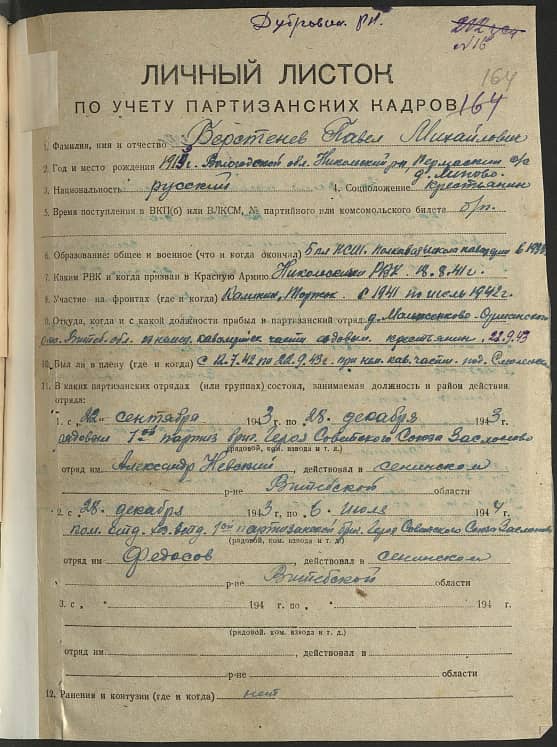 Дубровин. рн.
202 уси
№16
164
ЛИЧНЫЙ ЛИСТОК
ПО УЧЕТУ ПАРТИЗАНСКИХ КАДРОВ 164
1. Фамилия, имя и отчество Верстенев Павел Михайлович
2. Год и место рождения г. Вологодской обл. Никольский рн. с/с
д. Липово
3. Национальность русский 4. Соцположение крестьянин
5. Время поступления в ВКП(б) или ВЛКСМ, № партийного или комсомольского билета б/п.
6. Образование: общее и военное (что и когда окончал) 5 кл НСШ.
7. Каким РВК и когда призван в Красную Армию Никольским РВК 18.8.41 г.
8. Участие на фронтах (где и когда) Калинин, Торжок. с 1941 по июль 1942 г.
9. Откуда, когда и с какой должности прибыл в партизанский отряд д.
Витеб. обл. части рядовым. крестьянин, 22.9.43
10. Был ли в плену (где и когда) с 12.7.42 по 22.9.43 г. при нем. кав. части. под.
11. В каких партизанских отрядах (или группах) состоял, занимаемая должность и район действия
отряда:
1. с „22“ сентября 1943 г. по „28“ декабря 1943 г.
рядовым 1ой партиз бриг. Героя Советского Союза Заслонова
(рядовой, ком. взвода и т. д.)
отряд им. Александр Невский, действовал в сенинском
р-не Витебской области
2. с „28“ декабря 1943 г. по „6“ июля 1944 г.
1ой партизанской бриг. Героя Советского Союза
(рядовой, ком. взвода и т. д.)
отряд им Федосов, действовал в сенинском
р-не Витебской области
3. с „ “ 194 г. по „ “ 194 г.
(рядовой, ком. взвода и т. д.)
отряд им. , действовал в
р-не области
12. Ранения и контузии (где и когда) нет